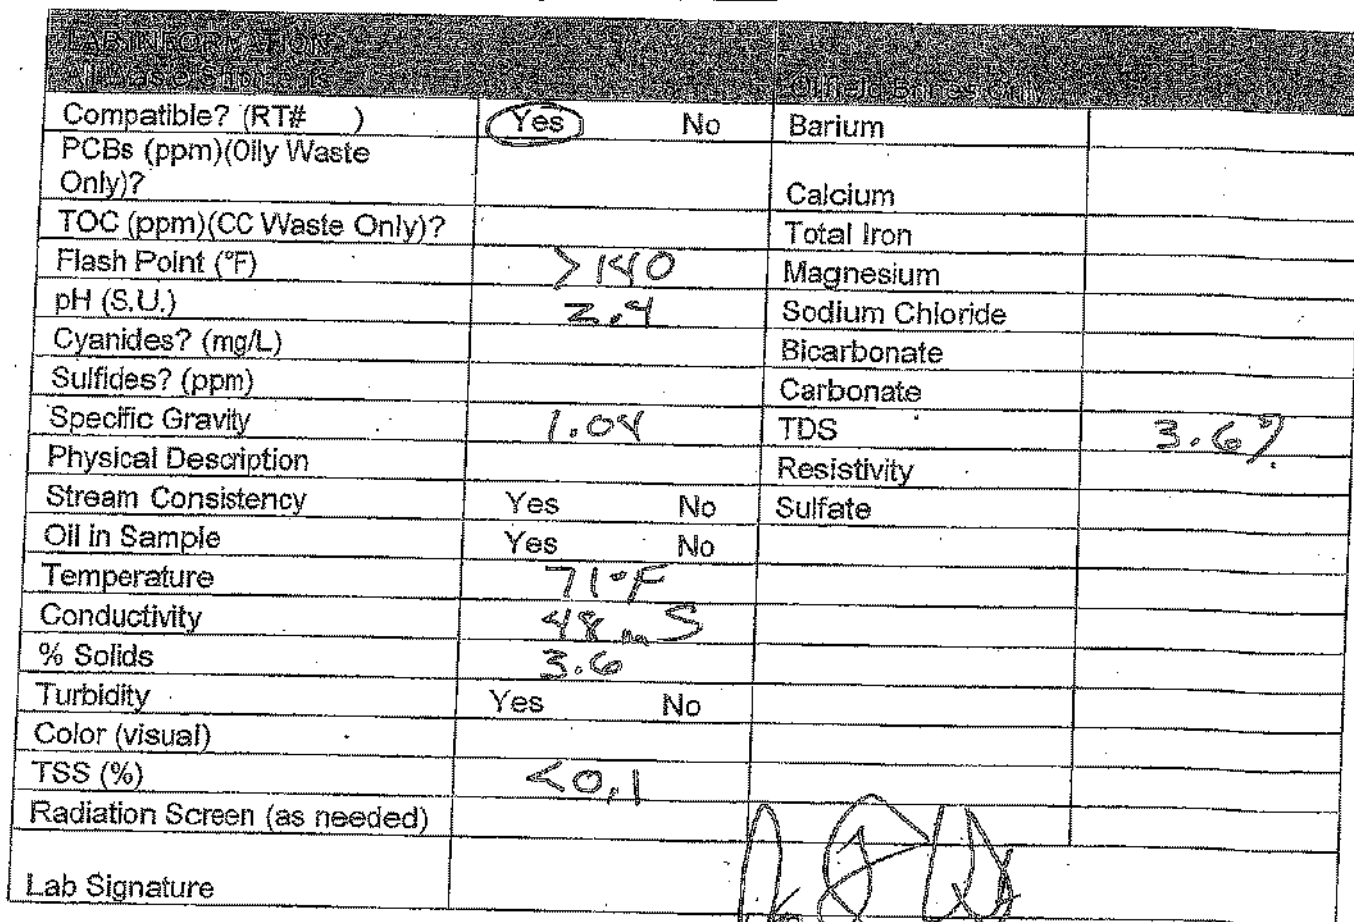 LAB INFORMATION
All Waste Shipments Oilfield Brines Only
Compatible? (RT# ) Yes No Barium
PCBs (ppm)(Oily Waste
Only)? Calcium
TOC (ppm)(CC Waste Only)? Total Iron
Flash Point (°F) >140 Magnesium
pH (S.U.) 2.4 Sodium Chloride
Cyanides? (mg/L) Bicarbonate
Sulfides? (ppm) Carbonate
Specific Gravity 1.04 TDS 3.6%
Physical Description Resistivity
Stream Consistency Yes No Sulfate
Oil in Sample Yes No
Temperature 71°F
Conductivity 48 mS
% Solids 3.6
Turbidity Yes No
Color (visual)
TSS (%) <0.1
Radiation Screen (as needed)
Lab Signature